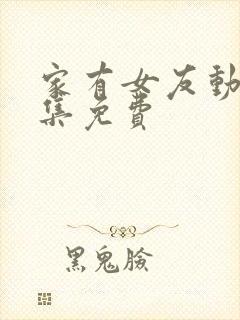 家有女友動
集免費
黑鬼臉